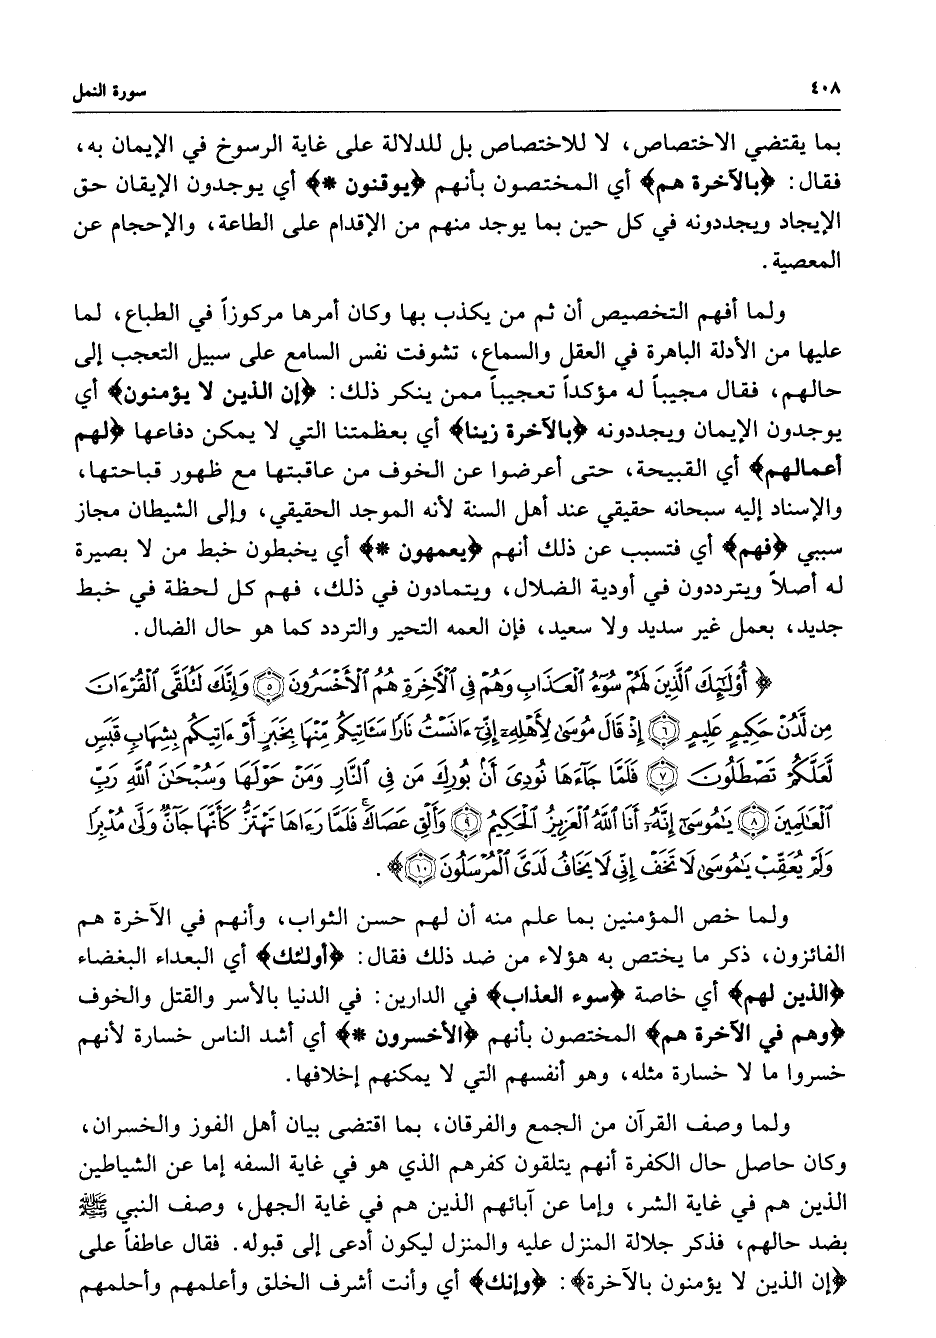 ٤٠٨ سورة النمل
بما يقتضي الاختصاص، لا للاختصاص بل للدلالة على غاية الرسوخ في الإيمان به،
فقال: ﴿بالآخرة هم﴾ أي المختصون بأنهم ﴿يوقنون *﴾ أي يوجدون الإيقان حق
الإيجاد ويجددونه في كل حين بما يوجد منهم من الإقدام على الطاعة، والإحجام عن
المعصية.
ولما أفهم التخصيص أن ثم من يكذب بها وكان أمرها مركوزاً في الطباع، لما
عليها من الأدلة الباهرة في العقل والسماع، تشوفت نفس السامع على سبيل التعجب إلى
حالهم، فقال مجيباً له مؤكداً تعجيباً ممن ينكر ذلك: ﴿إن الذين لا يؤمنون﴾ أي
يوجدون الإيمان ويجددونه ﴿بالآخرة زينا﴾ أي بعظمتنا التي لا يمكن دفاعها ﴿لهم
أعمالهم﴾ أي القبيحة، حتى أعرضوا عن الخوف من عاقبتها مع ظهور قباحتها،
والإسناد إليه سبحانه حقيقي عند أهل السنة لأنه الموجد الحقيقي، وإلى الشيطان مجاز
سببي ﴿فهم﴾ أي فتسبب عن ذلك أنهم ﴿يعمهون *﴾ أي يخبطون خبط من لا بصيرة
له أصلاً ويترددون في أودية الضلال، ويتمادون في ذلك، فهم كل لحظة في خبط
جديد، بعمل غير سديد ولا سعيد، فإن العمه التحير والتردد كما هو حال الضال.
﴿أُوْلَٰٓئِكَ ٱلَّذِينَ لَهُمْ سُوٓءُ ٱلْعَذَابِ وَهُمْ فِى ٱلْأَخِرَةِ هُمُ ٱلْأَخْسَرُونَ ۝٥ وَإِنَّكَ لَتُلَقَّى ٱلْقُرْءَانَ
مِن لَّدُنْ حَكِيمٍ عَلِيمٍ ۝٦ إِذْ قَالَ مُوسَىٰ لِأَهْلِهِۦٓ إِنِّىٓ ءَانَسْتُ نَارًا سَـَٔاتِيكُم مِّنْهَا بِخَبَرٍ أَوْ ءَاتِيكُم بِشِهَابٍ قَبَسٍ
لَّعَلَّكُمْ تَصْطَلُونَ ۝٧ فَلَمَّا جَآءَهَا نُودِىَ أَنۢ بُورِكَ مَن فِى ٱلنَّارِ وَمَنْ حَوْلَهَا وَسُبْحَٰنَ ٱللَّهِ رَبِّ
ٱلْعَٰلَمِينَ ۝٨ يَٰمُوسَىٰٓ إِنَّهُۥٓ أَنَا ٱللَّهُ ٱلْعَزِيزُ ٱلْحَكِيمُ ۝٩ وَأَلْقِ عَصَاكَ ۚ فَلَمَّا رَءَاهَا تَهْتَزُّ كَأَنَّهَا جَآنٌّ وَلَّىٰ مُدْبِرًا
وَلَمْ يُعَقِّبْ يَٰمُوسَىٰ لَا تَخَفْ إِنِّى لَا يَخَافُ لَدَىَّ ٱلْمُرْسَلُونَ ۝١٠﴾.
ولما خص المؤمنين بما علم منه أن لهم حسن الثواب، وأنهم في الآخرة هم
الفائزون، ذكر ما يختص به هؤلاء من ضد ذلك فقال: ﴿أولئك﴾ أي البعداء البغضاء
﴿الذين لهم﴾ أي خاصة ﴿سوء العذاب﴾ في الدارين: في الدنيا بالأسر والقتل والخوف
﴿وهم في الآخرة هم﴾ المختصون بأنهم ﴿الأخسرون *﴾ أي أشد الناس خسارة لأنهم
خسروا ما لا خسارة مثله، وهو أنفسهم التي لا يمكنهم إخلافها.
ولما وصف القرآن من الجمع والفرقان، بما اقتضى بيان أهل الفوز والخسران،
وكان حاصل حال الكفرة أنهم يتلقون كفرهم الذي هو في غاية السفه إما عن الشياطين
الذين هم في غاية الشر، وإما عن آبائهم الذين هم في غاية الجهل، وصف النبي ﷺ
بضد حالهم، فذكر جلالة المنزل عليه والمنزل ليكون أدعى إلى قبوله. فقال عاطفاً على
﴿إن الذين لا يؤمنون بالآخرة﴾: ﴿وإنك﴾ أي وأنت أشرف الخلق وأعلمهم وأحلمهم